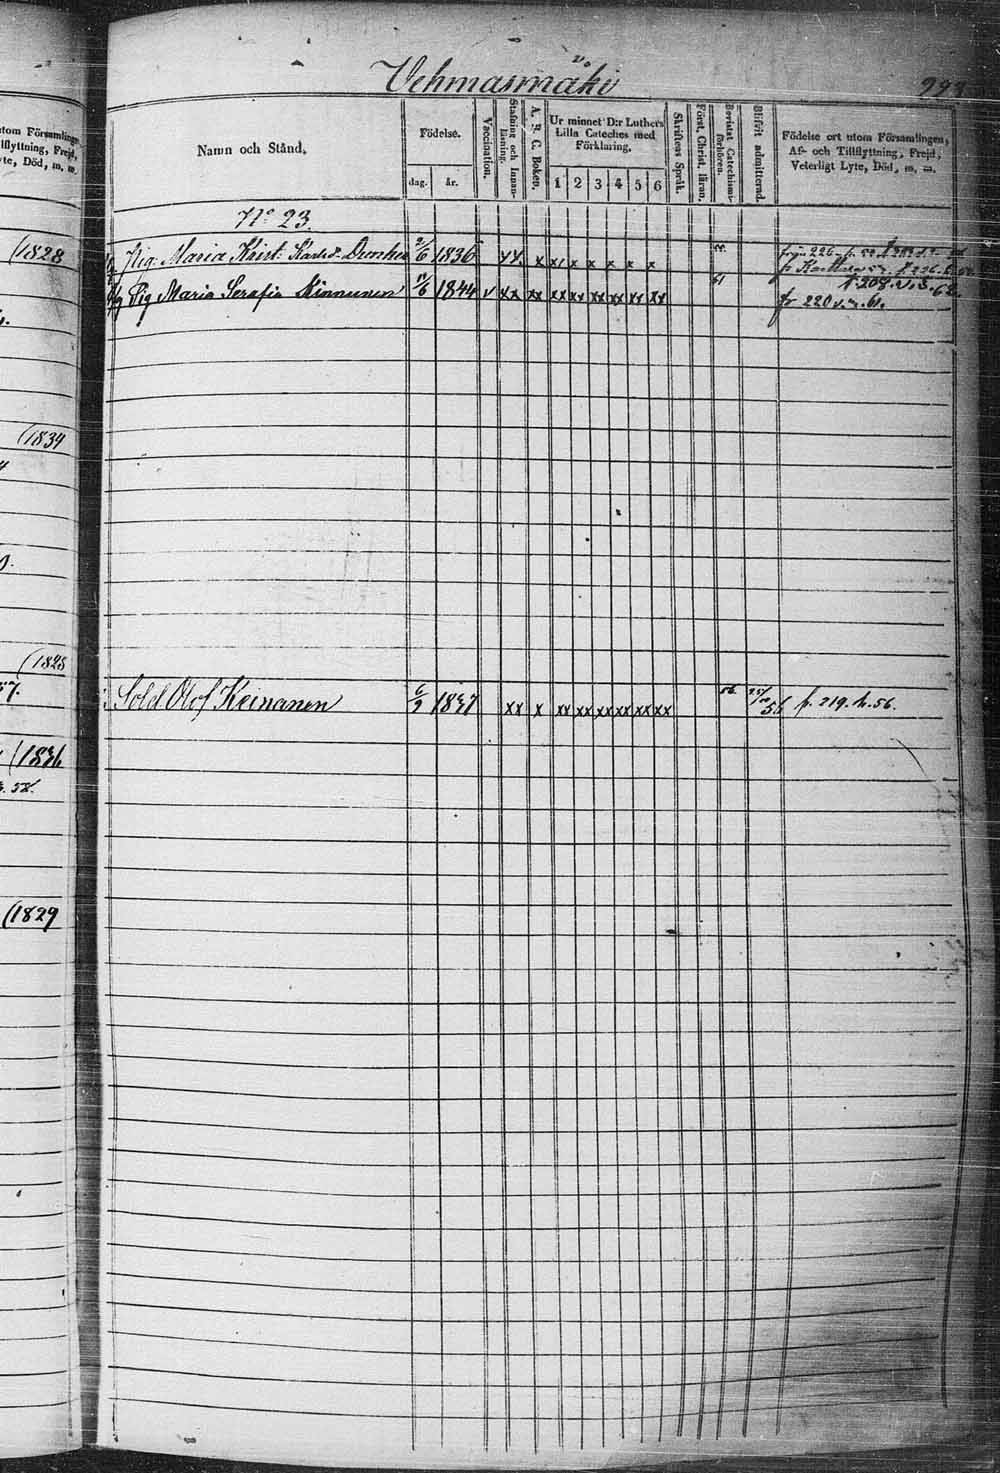 Vehmasmäki
utom Församlingen,
Tillflyttning, Frejd,
Lyte, Död, m. m.
(1828
(1834
(1828
57.
(1836
(1829
Namn och Stånd,
Födelse.
dag.
år.
Vaccination.
Stafning och Innan-
läsning.
A. B. C. Boken.
Ur minnet D:r Luthers
Lilla Cateches med
Förklaring.
1 2 3 4 5 6
Skriftens Språk.
Först. Christ. läran.
Bevistat Catechismi-
förhören.
Blifvit admitterad.
Födelse ort utom Församlingen,
Af- och Tillflyttning, Frejd,
Veterligt Lyte, Död, m. m.
No 23.
Pig. Maria Krist. 1836 xx x x x x x x
Pig Maria Serafia Kinnunen 1844 v xx xx xx xx xx xx xx xx 61
fr 220 v. s. 61.
Sold Olof Keinanen 1837 xx x xx xx xx xx xx xx 56 56 fr. 219. h. 56.